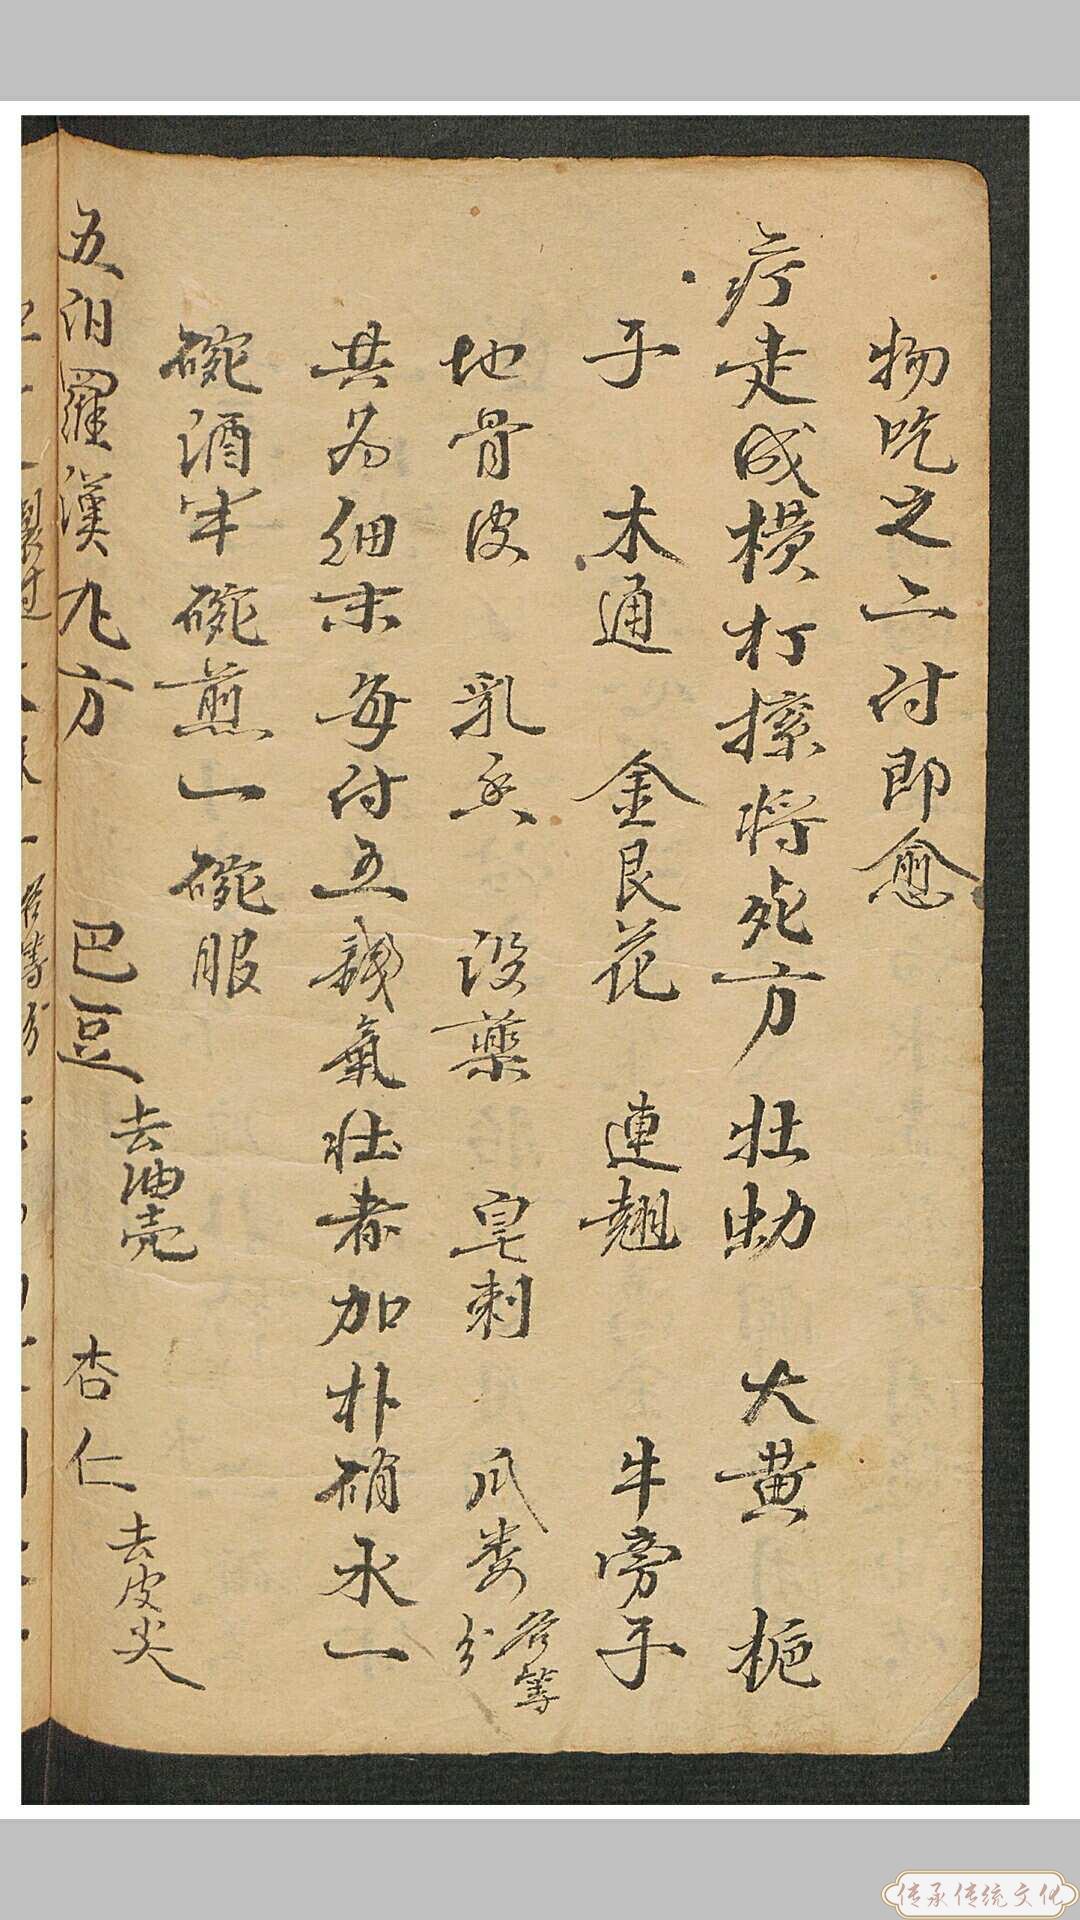 物吃之二付即愈
疔走成横打擦将死方 牡蛎 大黄 栀
子 木通 金艮花 連翘 牛旁子
地骨皮 乳香 没藥 皂刺 瓜娄 各等分
共为细末每付五錢氣壮者加朴硝水一
碗酒半碗煎一碗服
五汨羅漢九方 巴豆 去油壳 杏仁 去皮尖
传承传统文化